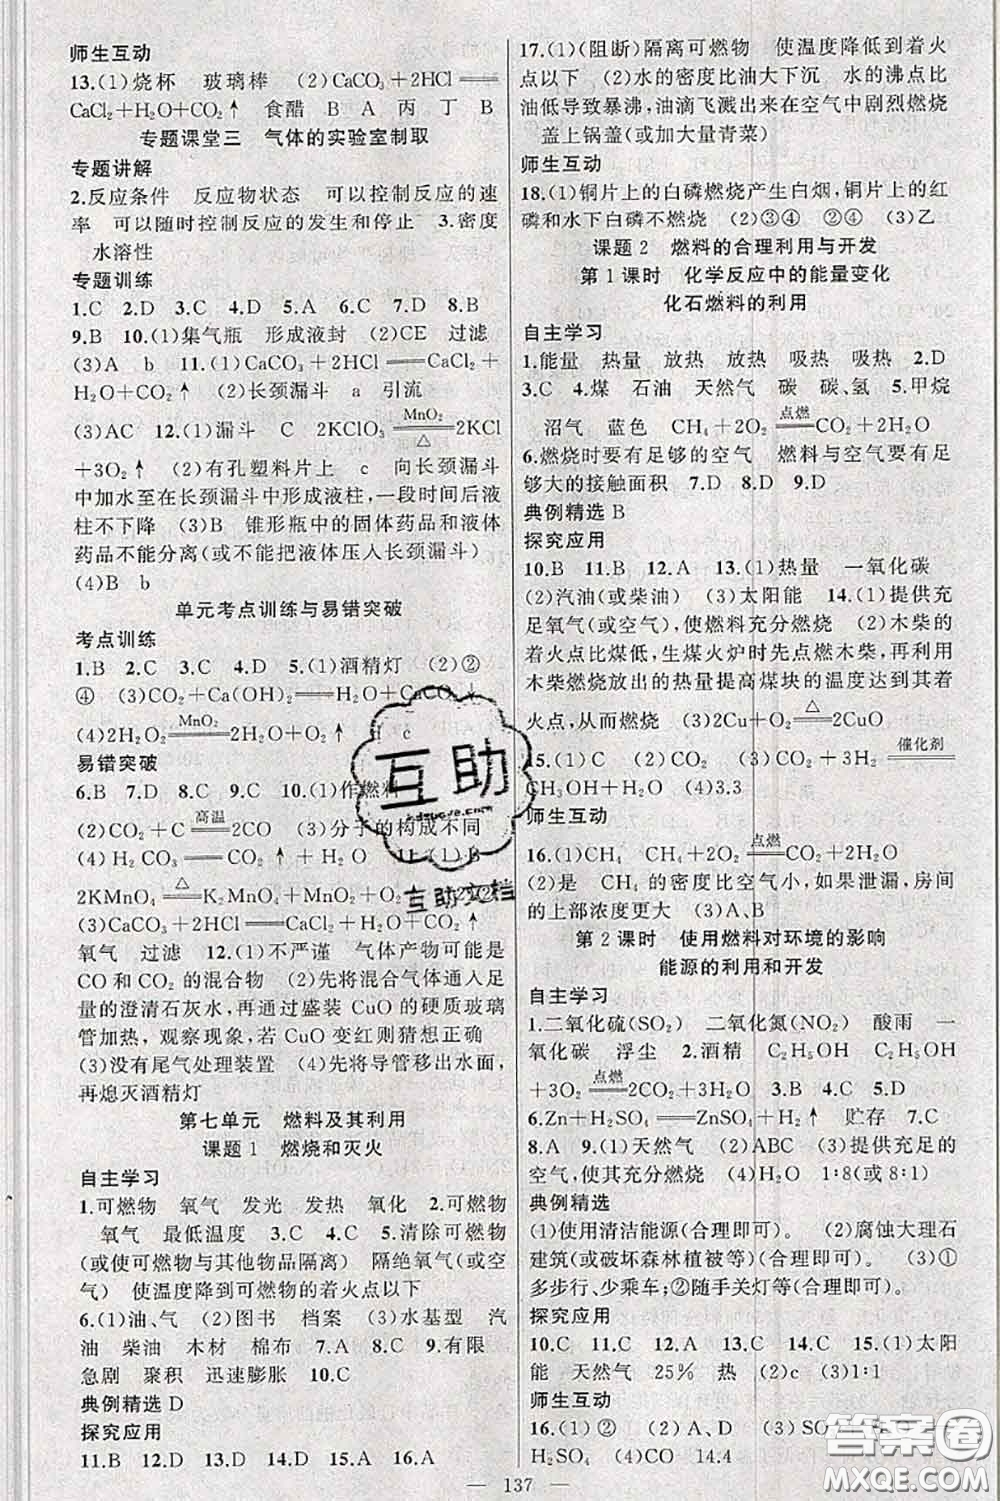 师生互动
13.(1)烧杯 玻璃棒 (2)CaCO₃+2HCl══
CaCl₂+H₂O+CO₂↑ 食醋 B A 丙 丁 B
专题课堂三 气体的实验室制取
专题讲解
2.反应条件 反应物状态 可以控制反应的速
率 可以随时控制反应的发生和停止 3.密度
水溶性
专题训练
1.C 2.D 3.C 4.D 5.A 6.C 7.D 8.B
9.B 10.(1)集气瓶 形成液封 (2)CE 过滤
(3)A b 11.(1)CaCO₃+2HCl══CaCl₂+
H₂O+CO₂↑ (2)长颈漏斗 a 引流
(3)AC 12.(1)漏斗 C 2KClO₃ MnO₂ △ 2KCl
+3O₂↑ (2)有孔塑料片上 c 向长颈漏斗
中加水至在长颈漏斗中形成液柱,一段时间后液
柱不下降 (3)B 锥形瓶中的固体药品和液体
药品不能分离(或不能把液体压人长颈漏斗)
(4)B b
单元考点训练与易错突破
考点训练
1.B 2.C 3.C 4.D 5.(1)酒精灯 (2)②
④ (3)CO₂+Ca(OH)₂══H₂O+CaCO₃↓
(4)2H₂O₂ MnO₂ 2H₂O+O₂↑ c
易错突破
6.B 7.D 8.C 9.C 10.(1)作燃料
(2)CO₂+C 高温 2CO (3)分子的构成不同
(4)H₂CO₃══CO₂↑+H₂O 11.(1)B
2KMnO₄ △ K₂MnO₄+MnO₂+O₂↑ (2)
(3)CaCO₃+2HCl══CaCl₂+H₂O+CO₂↑
氧气 过滤 12.(1)不严谨 气体产物可能是
CO和CO₂的混合物 (2)先将混合气体通入足
量的澄清石灰水,再通过盛装CuO的硬质玻璃
管加热,观察现象,若CuO变红则猜想正确
(3)没有尾气处理装置 (4)先将导管移出水面,
再熄灭酒精灯
第七单元 燃料及其利用
课题1 燃烧和灭火
自主学习
1.可燃物 氧气 发光 发热 氧化 2.可燃物
氧气 最低温度 3.C 4.C 5.清除可燃物
(或使可燃物与其他物品隔离) 隔绝氧气(或空
气) 使温度降到可燃物的着火点以下
6.(1)油、气 (2)图书 档案 (3)水基型 汽
油 柴油 木材 棉布 7.A 8.C 9.有限
急剧 聚积 迅速膨胀 10.C
典例精选 D
探究应用
11.B 12.D 13.D 14.D 15.A 16.A
17.(1)(阻断)隔离可燃物 使温度降低到着火
点以下 (2)水的密度比油大下沉 水的沸点比
油低导致暴沸,油滴飞溅出来在空气中剧烈燃烧
盖上锅盖(或加大量青菜)
师生互动
18.(1)铜片上的白磷燃烧产生白烟,铜片上的红
磷和水下白磷不燃烧 (2)③④ ②④ (3)乙
课题2 燃料的合理利用与开发
第1课时 化学反应中的能量变化
化石燃料的利用
自主学习
1.能量 热量 放热 放热 吸热 吸热 2.D
3.C 4.煤 石油 天然气 碳 碳、氢 5.甲烷
沼气 蓝色 CH₄+2O₂ 点燃 CO₂+2H₂O
6.燃烧时要有足够的空气 燃料与空气要有足
够大的接触面积 7.D 8.D 9.D
典例精选 B
探究应用
10.B 11.B 12.A 13.(1)热量 一氧化碳
(2)汽油(或柴油) (3)太阳能 14.(1)提供充
足氧气(或空气),使燃料充分燃烧 (2)木柴的
着火点比煤低,生煤火炉时先点燃木柴,再利用
木柴燃烧放出的热量提高煤块的温度达到其着
火点,从而燃烧 (3)2Cu+O₂ △ 2CuO
15.(1)C (2)C (3)CO₂+3H₂ 催化剂
CH₃OH+H₂O (4)3.3
师生互动
16.(1)CH₄ CH₄+2O₂ 点燃 CO₂+2H₂O
(2)是 CH₄的密度比空气小,如果泄漏,房间
的上部浓度更大 (3)A、B
第2课时 使用燃料对环境的影响
能源的利用和开发
自主学习
1.二氧化硫(SO₂) 二氧化氮(NO₂) 酸雨 一
氧化碳 浮尘 2.酒精 C₂H₅OH C₂H₅OH
+3O₂ 点燃 2CO₂+3H₂O 3.B 4.C 5.D
6.Zn+H₂SO₄══ZnSO₄+H₂↑ 贮存 7.C
8.A 9.(1)天然气 (2)ABC (3)提供充足的
空气,使其充分燃烧 (4)H₂O 1:8(或8:1)
典例精选
(1)使用清洁能源(合理即可)。 (2)腐蚀大理石
建筑(或破坏森林植被等)(合理即可) (3)①
多步行、少乘车;②随手关灯等(合理即可)。
探究应用
10.C 11.C 12.A 13.C 14.C 15.(1)太阳
能 天然气 25% 热 (2)c (3)1:1
师生互动
16.(1)② (2)A、D (3)SO
H₂SO₄ (4)CO 14.4
137
互助
互助文档
答案圈
MXQE.COM